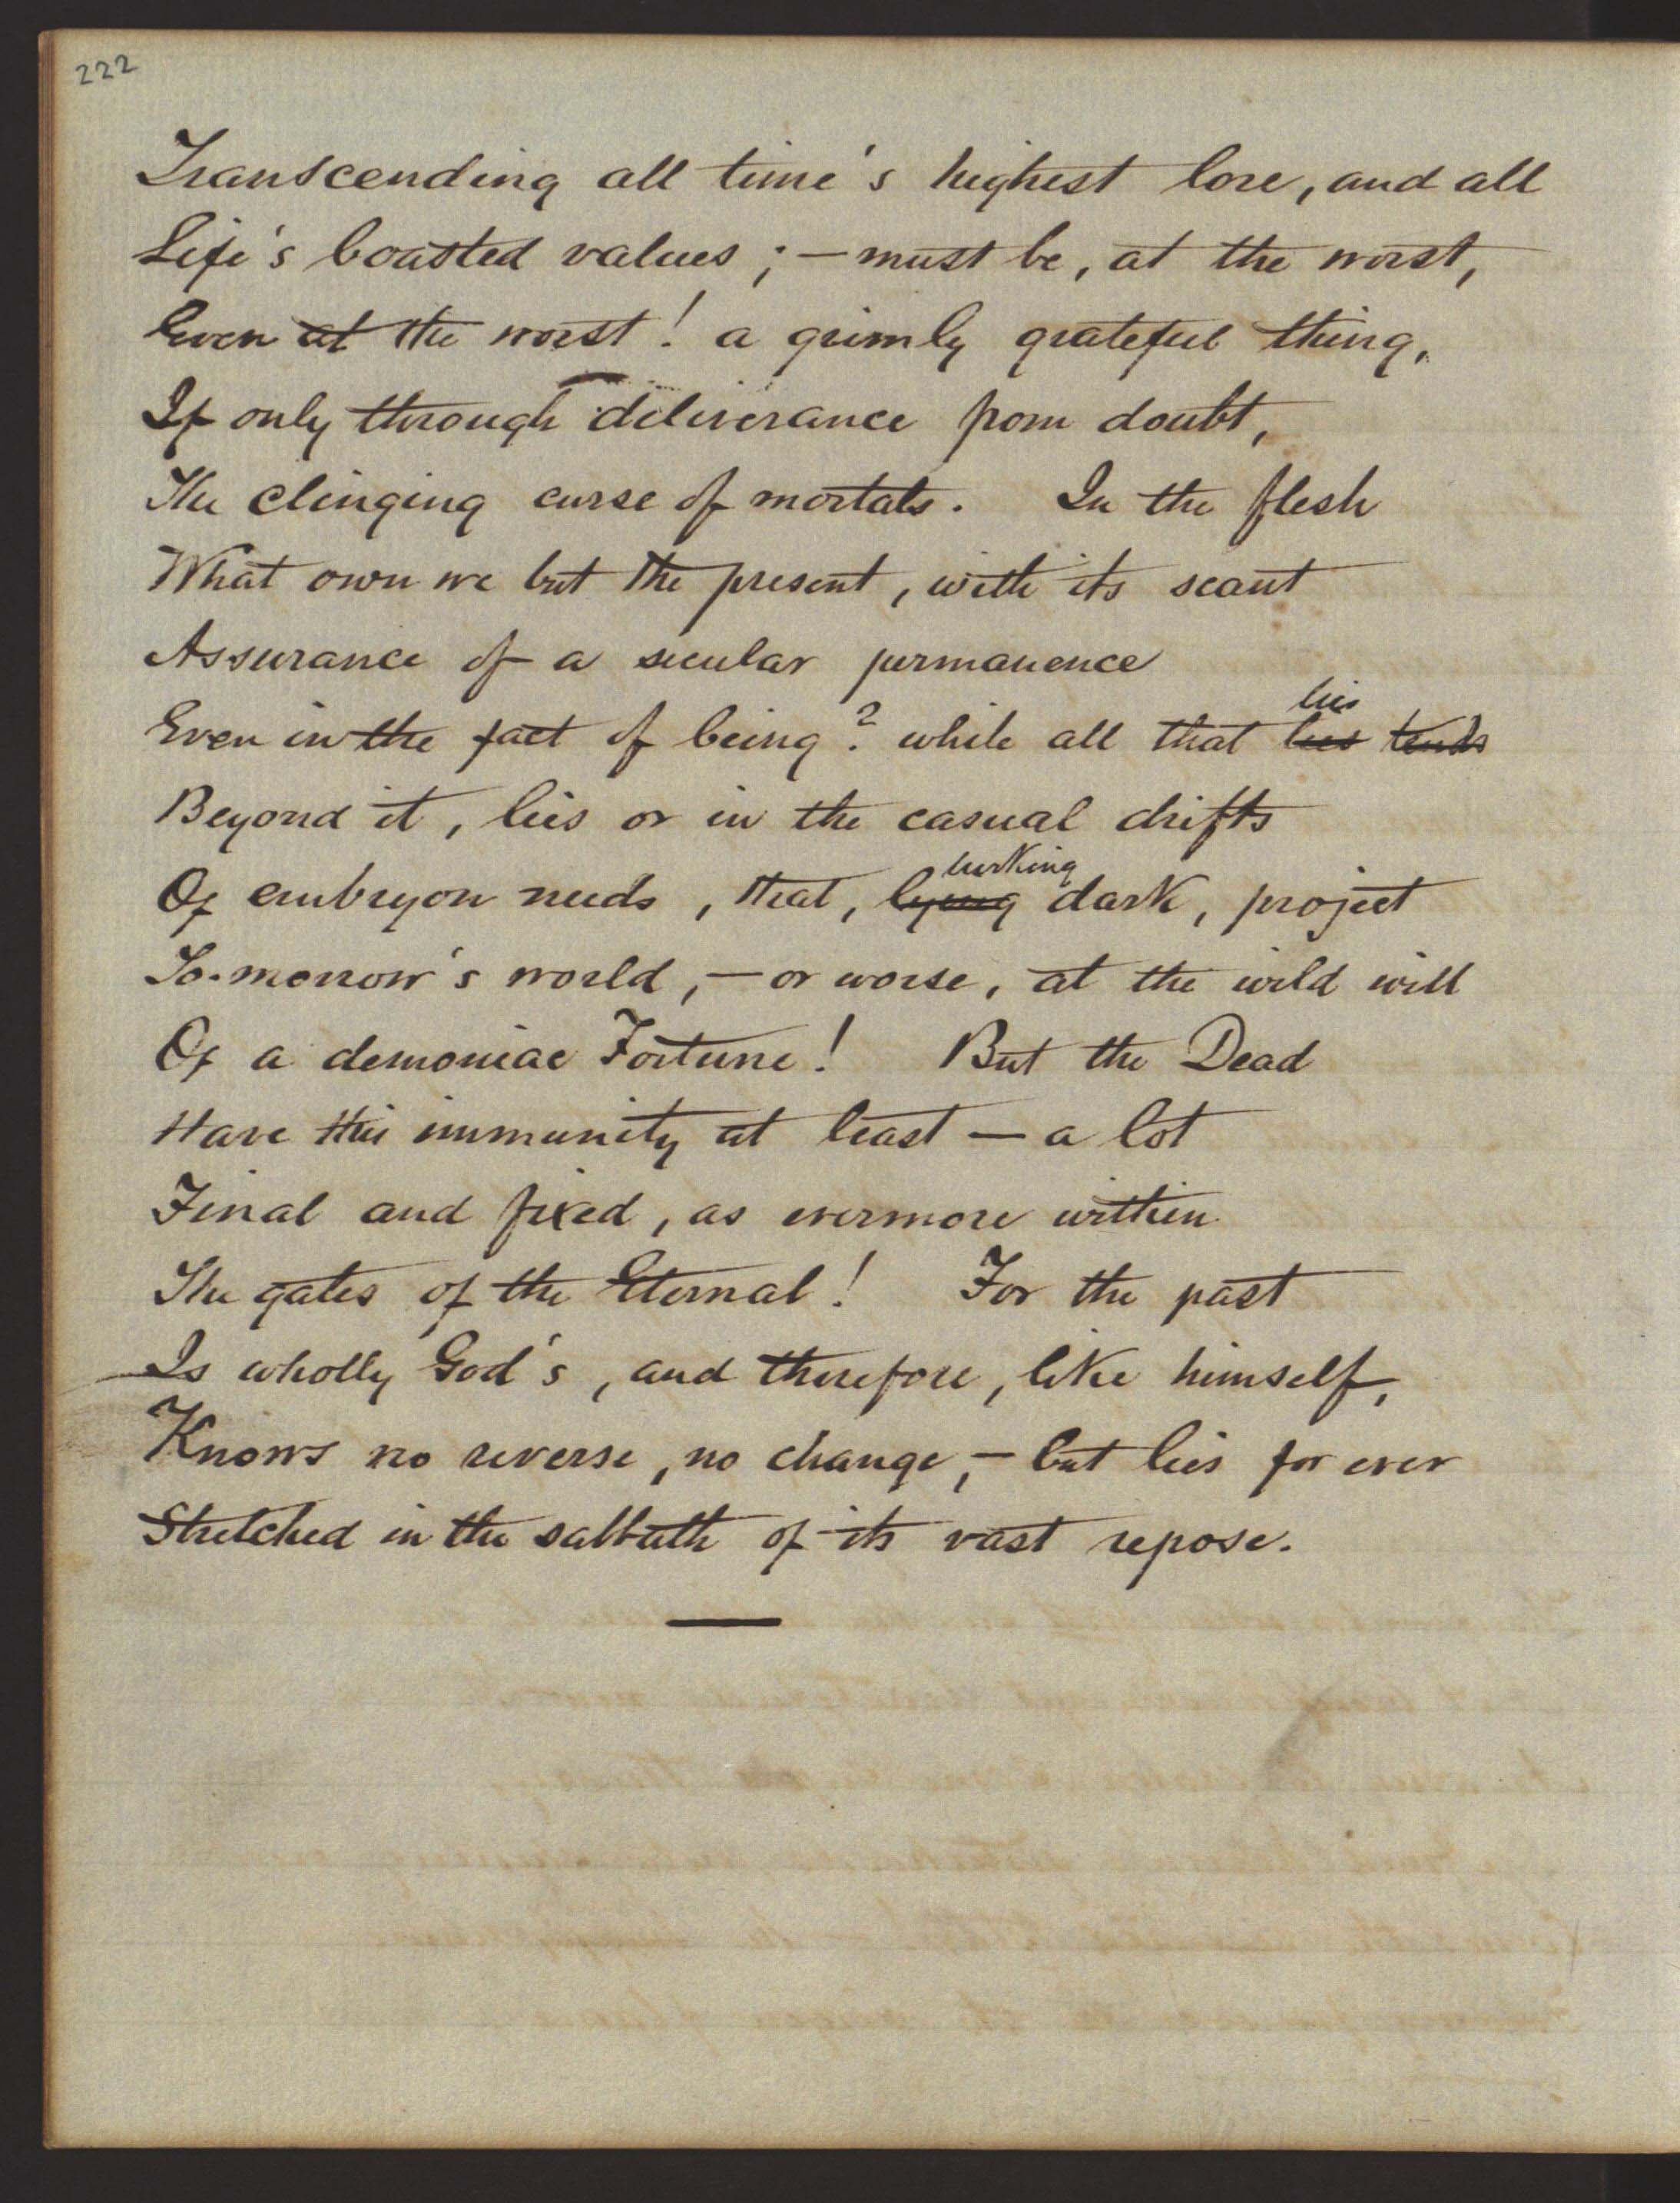 222
Transcending all time's highest lore, and all
Life's boasted values; — must be, at the worst,
Even at the worst! a grimly grateful thing,
If only through deliverance from doubt,
The clinging curse of mortals. In the flesh
What own we but the present, with its scant
Assurance of a secular permanence
lies
Even in the fact of being? while all that lies tends
Beyond it, lies or in the casual drifts
lurking
Of embryon needs, that, lying dark, project
To-morrow's world, — or worse, at the wild will
Of a demoniac Fortune! But the Dead
Have this immunity at least — a lot
Final and fixed, as evermore within
The gates of the Eternal! For the past
Is wholly God's, and therefore, like himself,
Knows no reverse, no change, — but lies for ever
Stretched in the sabbath of its vast repose.